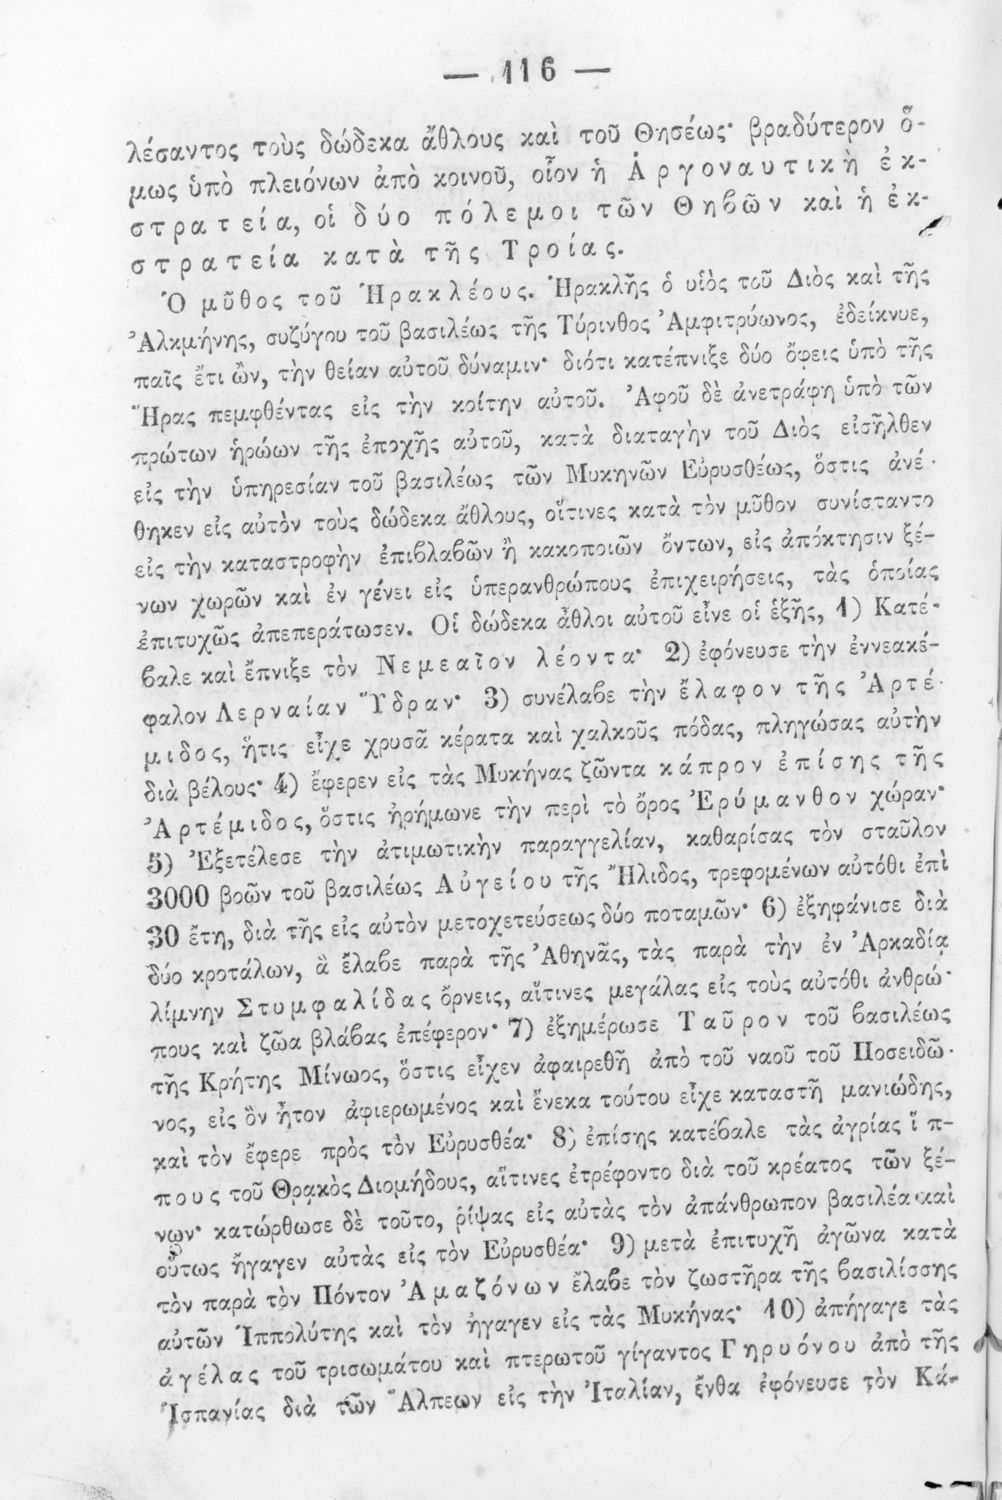 — 116 —
λέσαντος τοὺς δώδεκα ἄθλους καὶ τοῦ Θησέως· βραδύτερον ὅ-
μως ὑπὸ πλειόνων ἀπὸ κοινοῦ, οἷον ἡ Ἀργοναυτικὴ ἐκ-
στρατεία, οἱ δύο πόλεμοι τῶν Θηβῶν καὶ ἡ ἐκ-
στρατεία κατὰ τῆς Τροίας.
Ὁ μῦθος τοῦ Ἡρακλέους. Ἡρακλῆς ὁ υἱὸς τοῦ Διὸς καὶ τῆς
Ἀλκμήνης, συζύγου τοῦ βασιλέως τῆς Τύρινθος Ἀμφιτρύωνος, ἐδείκνυε,
παῖς ἔτι ὢν, τὴν θείαν αὐτοῦ δύναμιν· διότι κατέπνιξε δύο ὄφεις ὑπὸ τῆς
Ἥρας πεμφθέντας εἰς τὴν κοίτην αὐτοῦ. Ἀφοῦ δὲ ἀνετράφη ὑπὸ τῶν
πρώτων ἡρώων τῆς ἐποχῆς αὐτοῦ, κατὰ διαταγὴν τοῦ Διὸς εἰσῆλθεν
εἰς τὴν ὑπηρεσίαν τοῦ βασιλέως τῶν Μυκηνῶν Εὐρυσθέως, ὅστις ἀνέ-
θηκεν εἰς αὐτὸν τοὺς δώδεκα ἄθλους, οἵτινες κατὰ τὸν μῦθον συνίσταντο
εἰς τὴν καταστροφὴν ἐπιβλαβῶν ἢ κακοποιῶν ὄντων, εἰς ἀπόκτησιν ξέ-
νων χωρῶν καὶ ἐν γένει εἰς ὑπερανθρώπους ἐπιχειρήσεις, τὰς ὁποίας
ἐπιτυχῶς ἀπεπεράτωσεν. Οἱ δώδεκα ἆθλοι αὐτοῦ εἶνε οἱ ἑξῆς, 1) Κατέ-
βαλε καὶ ἔπνιξε τὸν Νεμεαῖον λέοντα· 2) ἐφόνευσε τὴν ἐννεακέ-
φαλον Λερναίαν Ὕδραν· 3) συνέλαβε τὴν ἔλαφον τῆς Ἀρτέ-
μιδος, ἥτις εἶχε χρυσᾶ κέρατα καὶ χαλκοῦς πόδας, πληγώσας αὐτὴν
διὰ βέλους· 4) ἔφερεν εἰς τὰς Μυκήνας ζῶντα κάπρον ἐπίσης τῆς
Ἀρτέμιδος, ὅστις ἠρήμωνε τὴν περὶ τὸ ὄρος Ἐρύμανθον χώραν·
5) Ἐξετέλεσε τὴν ἀτιμωτικὴν παραγγελίαν, καθαρίσας τὸν σταῦλον
3000 βοῶν τοῦ βασιλέως Αὐγείου τῆς Ἤλιδος, τρεφομένων αὐτόθι ἐπὶ
30 ἔτη, διὰ τῆς εἰς αὐτὸν μετοχετεύσεως δύο ποταμῶν· 6) ἐξηφάνισε διὰ
δύο κροτάλων, ἃ ἔλαβε παρὰ τῆς Ἀθηνᾶς, τὰς παρὰ τὴν ἐν Ἀρκαδίᾳ
λίμνην Στυμφαλίδας ὄρνεις, αἵτινες μεγάλας εἰς τοὺς αὐτόθι ἀνθρώ-
πους καὶ ζῶα βλάβας ἐπέφερον· 7) ἐξημέρωσε Ταῦρον τοῦ βασιλέως
τῆς Κρήτης Μίνωος, ὅστις εἶχεν ἀφαιρεθῆ ἀπὸ τοῦ ναοῦ τοῦ Ποσειδῶ-
νος, εἰς ὃν ἦτον ἀφιερωμένος καὶ ἕνεκα τούτου εἶχε καταστῆ μανιώδης,
καὶ τὸν ἔφερε πρὸς τὸν Εὐρυσθέα· 8) ἐπίσης κατέβαλε τὰς ἀγρίας ἵπ-
πους τοῦ Θρακὸς Διομήδους, αἵτινες ἐτρέφοντο διὰ τοῦ κρέατος τῶν ξέ-
νων· κατώρθωσε δὲ τοῦτο, ῥίψας εἰς αὐτὰς τὸν ἀπάνθρωπον βασιλέα καὶ
οὕτως ἤγαγεν αὐτὰς εἰς τὸν Εὐρυσθέα· 9) μετὰ ἐπιτυχῆ ἀγῶνα κατὰ
τὸν παρὰ τὸν Πόντον Ἀμαζόνων ἔλαβε τὸν ζωστῆρα τῆς βασιλίσσης
αὐτῶν Ἱππολύτης καὶ τὸν ἤγαγεν εἰς τὰς Μυκήνας· 10) ἀπήγαγε τὰς
ἀγέλας τοῦ τρισωμάτου καὶ πτερωτοῦ γίγαντος Γηρυόνου ἀπὸ τῆς
Ἱσπανίας διὰ τῶν Ἄλπεων εἰς τὴν Ἰταλίαν, ἔνθα ἐφόνευσε τὸν Κά-